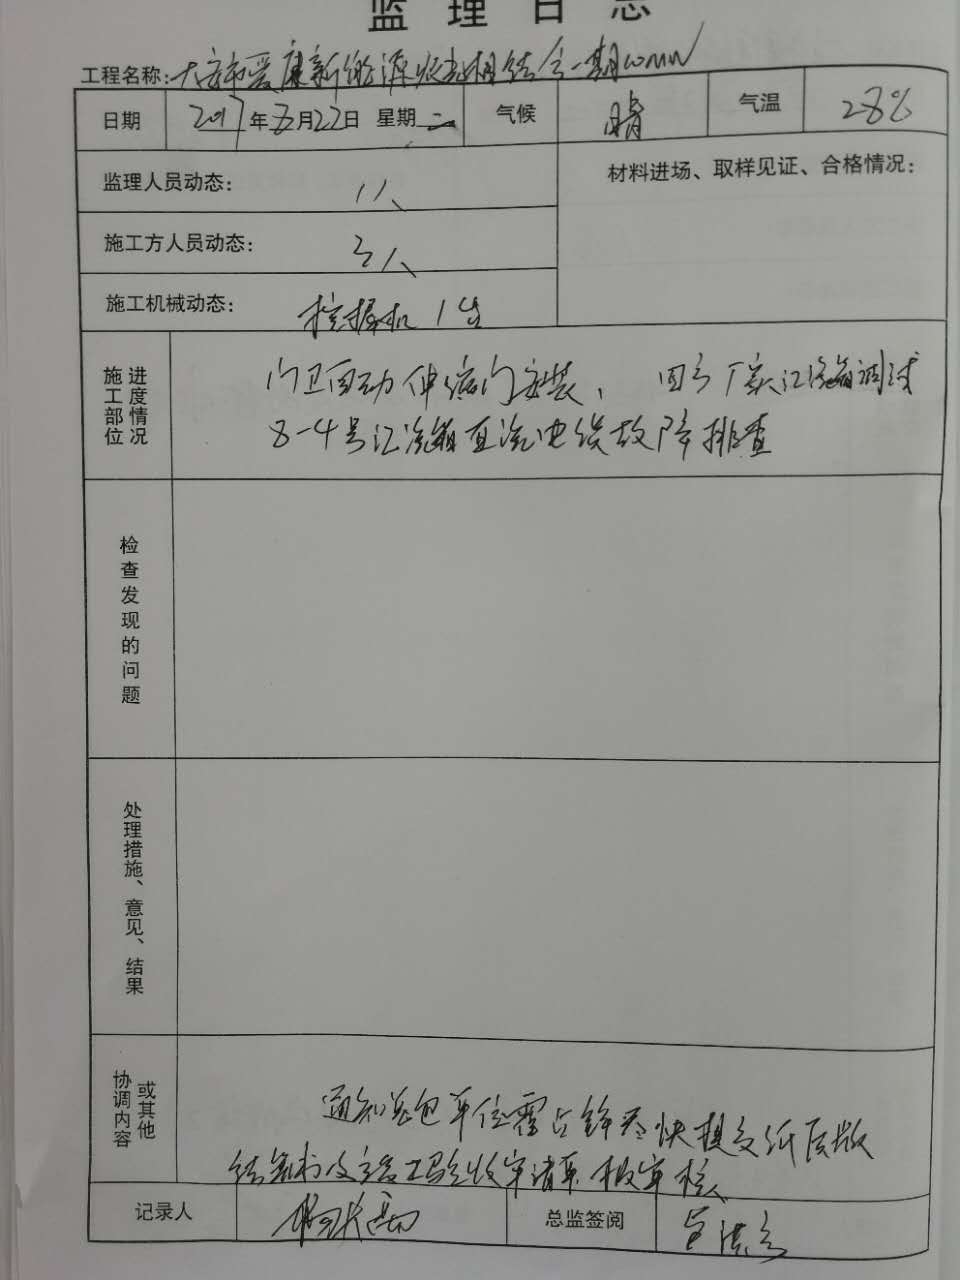 监理日志
工程名称: 大安市爱康新能源牧光相结合一期10MW
日期 2017年8月22日 星期二 气候 晴 气温 28℃
监理人员动态: 1人 材料进场、取样见证、合格情况:
施工方人员动态: 3人
施工机械动态: 挖掘机1台
施工部位 进度情况 门卫自动伸缩门安装, 厂家汇流箱调试
8-4号汇流箱直流电缆故障排查
检查发现的问题
处理措施、意见、结果
协调内容 或其他 通知总包单位霍占锋尽快提交纸质版
结算书及竣工验收申请单报审核
记录人 总监签阅